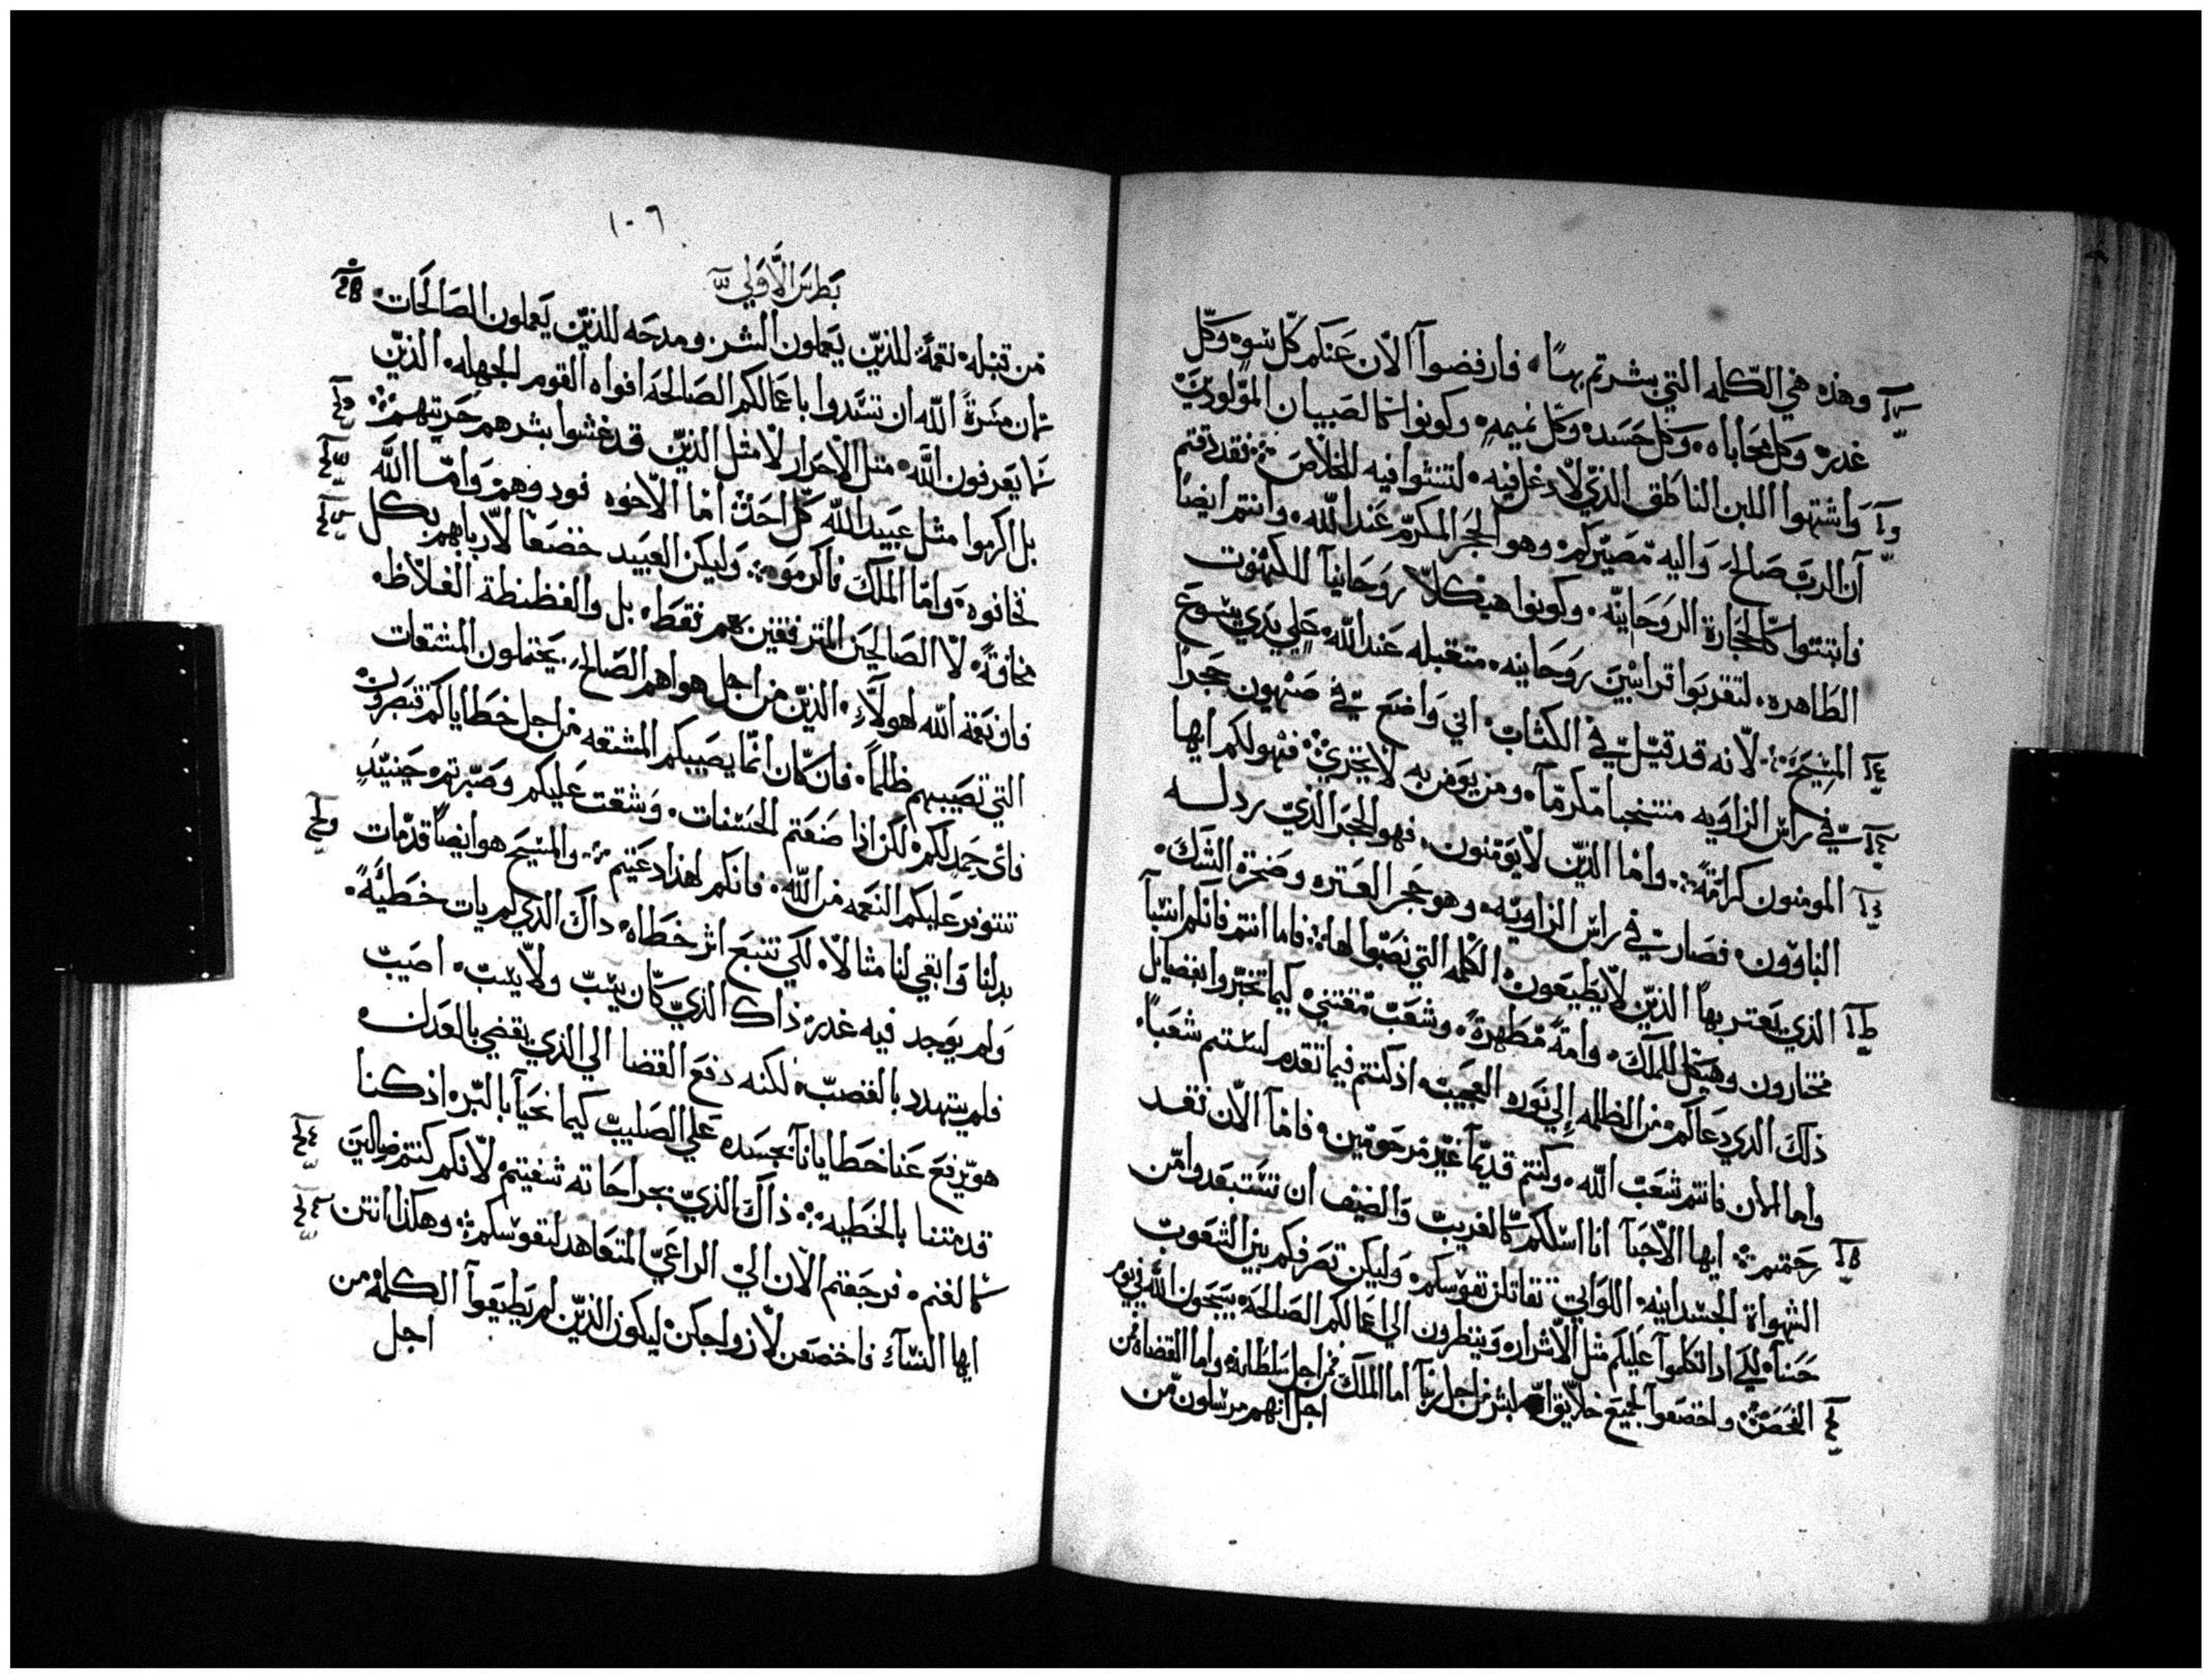 وهذه هي الكلمه التي بشرتم بها فارفضوا الان عنكم كل سوه وكل
غدر وكل محاباه وكل حسد وكل نميمه وكونوا كالصبيان المولودين
واشتهوا اللبن الناطق الذي لا دغل فيه لتنشوا فيه للخلاص فقد ذقتم
ان الرب صالح واليه مصيركم وهو الحجر المكرم عند الله وانتم ايضا
فابتنوا كالحجارة الروحانيه وكونوا هيكلا روحانيا للكهنوت
الطاهره لتقربوا قرابين روحانيه متقبله عند الله علي يدي يسوع
المسيح لانه قد قيل في الكتاب اني واضع في صهيون حجرا
في راس الزاويه منتخبا مكرما ومن يومن به لا يخزي فهو لكم ايها
المومنون كرامة واما الذين لا يومنون فهو الحجر الذي ردله
الباوون فصارت في راس الزاويه وهو حجر العتره وصخرة الشك
الذي يعتر بها الذين لا يطيعون الكلمه التي نصبوا لها فاما انتم فانكم انتبا
مختارون وهيكل للملك وامة مطهرة وشعب مقتني كيما تخبروا بفضايل
ذلك الذي دعاكم من الظلمه الي نوره العجيب اذ كنتم فيما تقدم لستم شعبا
واما الان فانتم شعب الله وكنتم قديما غير مرحومين فاما الان فقد
رحمتم ايها الاحبا انا اسلكم كالغريب والضيف ان تستبعدوا من
الشهواة الجسدانيه اللواتي تقاتلن نفوسكم وليكن تصرفكم بين الشعوب
حسنا لكي اذا تكلموا عليكم مثل الاشرار وينظرون الي اعمالكم الصالحه يسبحون الله في يوم
الفحص واخضعوا لجميع خلايق البشر من اجل ربنا اما الملك فمن اجل سلطانه واما القضاه فمن
اجل انهم مرسلون من
١٠٦
بطرس الاولي
من قبله نقمة للذين يعملون الشر ومدحه للذين يعملون الصالحات
لان مسرة الله ان تسدوا باعمالكم الصالحه افواه القوم الجهله الذين
ما يعرفون الله مثل الاحرار لا مثل الذين قد غشوا بشرهم حريتهم
بل اكرموا مثل عبيد الله كل احد اما الاخوه فودوهم واما الله
فخافوه واما الملك فاكرموه وليكن العبيد خضعا لاربابهم بكل
مخافة لا الصالحين المترفقين بهم فقط بل والفظفظة الغلاظ
فان نعمة الله لهولاء الذين من اجل هواهم الصالح يحتملون المشقات
التي تصيبهم ظلما فان كان انما يصيبكم المشقه من اجل خطاياكم فتصبرون
فاي حمد لكم لكن اذا صنعتم الحسنات وشقت عليكم وصبرتم حينيد
تتوفر عليكم النعمه من الله فانكم لهذا دعيتم والمسيح هو ايضا قد مات
بدلنا وابقي لنا مثالا لكي نتبع اثر خطاه داك الذي لم يات خطيئة
ولم يوجد فيه غدر ذاك الذي كان يسب ولا يسب اصيب
فلم يتهدد بالغصب لكنه دفع القضا الي الذي يقضي بالعدل
هو يرفع عنا خطايانا بجسده علي الصليب كيما نحيا بالبر اذ كنا
قد متنا بالخطيه ذاك الذي بجراحاته شفيتم لانكم كنتم ضالين
كالغنم فرجعتم الان الي الراعي المتعاهد لنفوسكم وهكذا انتن
ايها النساء فاخضعن لازواجكن ليكون الذين لم يطيعوا الكلمة من
اجل